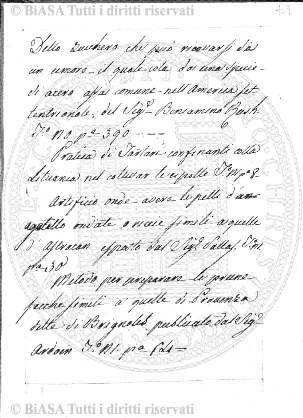 © BIASA Tutti i diritti riservati
Dello Zucchero che può ricavarsi da
un umore il quale cola da una specie
di acero assai comune nell'America set
tentrionale, del Sigr Beniamino Rush
To no pa 390 - - -
Pratica di Tartari confinanti alla
Lituania nel coltivar le
Artificio onde avere le pelli d'
agnello ondate o riccie simili a quelle
d'Astracan dal Sigr
pa 30
Metodo per preparare le prune
secche simili a quelle di Provenza
dette di Brignoles pubblicato dal Sigr
Ardoin To pa 624 =
© BIASA Tutti i diritti riservati